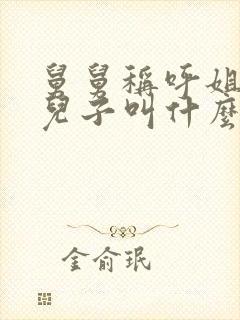 舅舅稱呼姐
兒子叫什麼
金俞珉